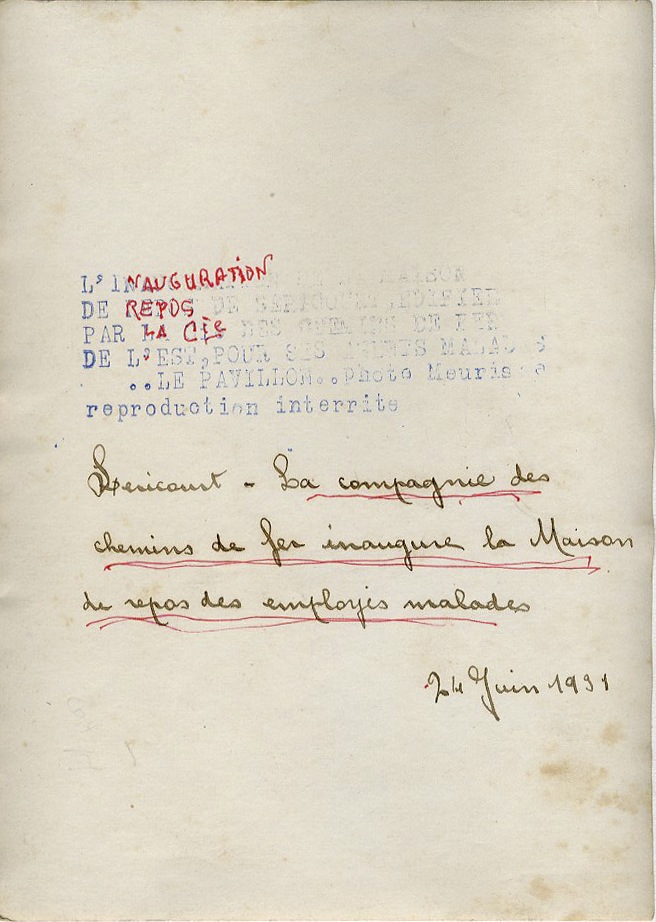 L'INAUGURATION DE LA MAISON
DE REPOS DE BERICOURT, EDIFIEE
PAR LA Cie DES CHEMINS DE FER
DE L'EST, POUR SES AGENTS MALADES
..LE PAVILLON..Photo Meurisse
reproduction interrite
Bericourt - La compagnie des
chemins de fer inaugure la Maison
de repos des employés malades
24 Juin 1931